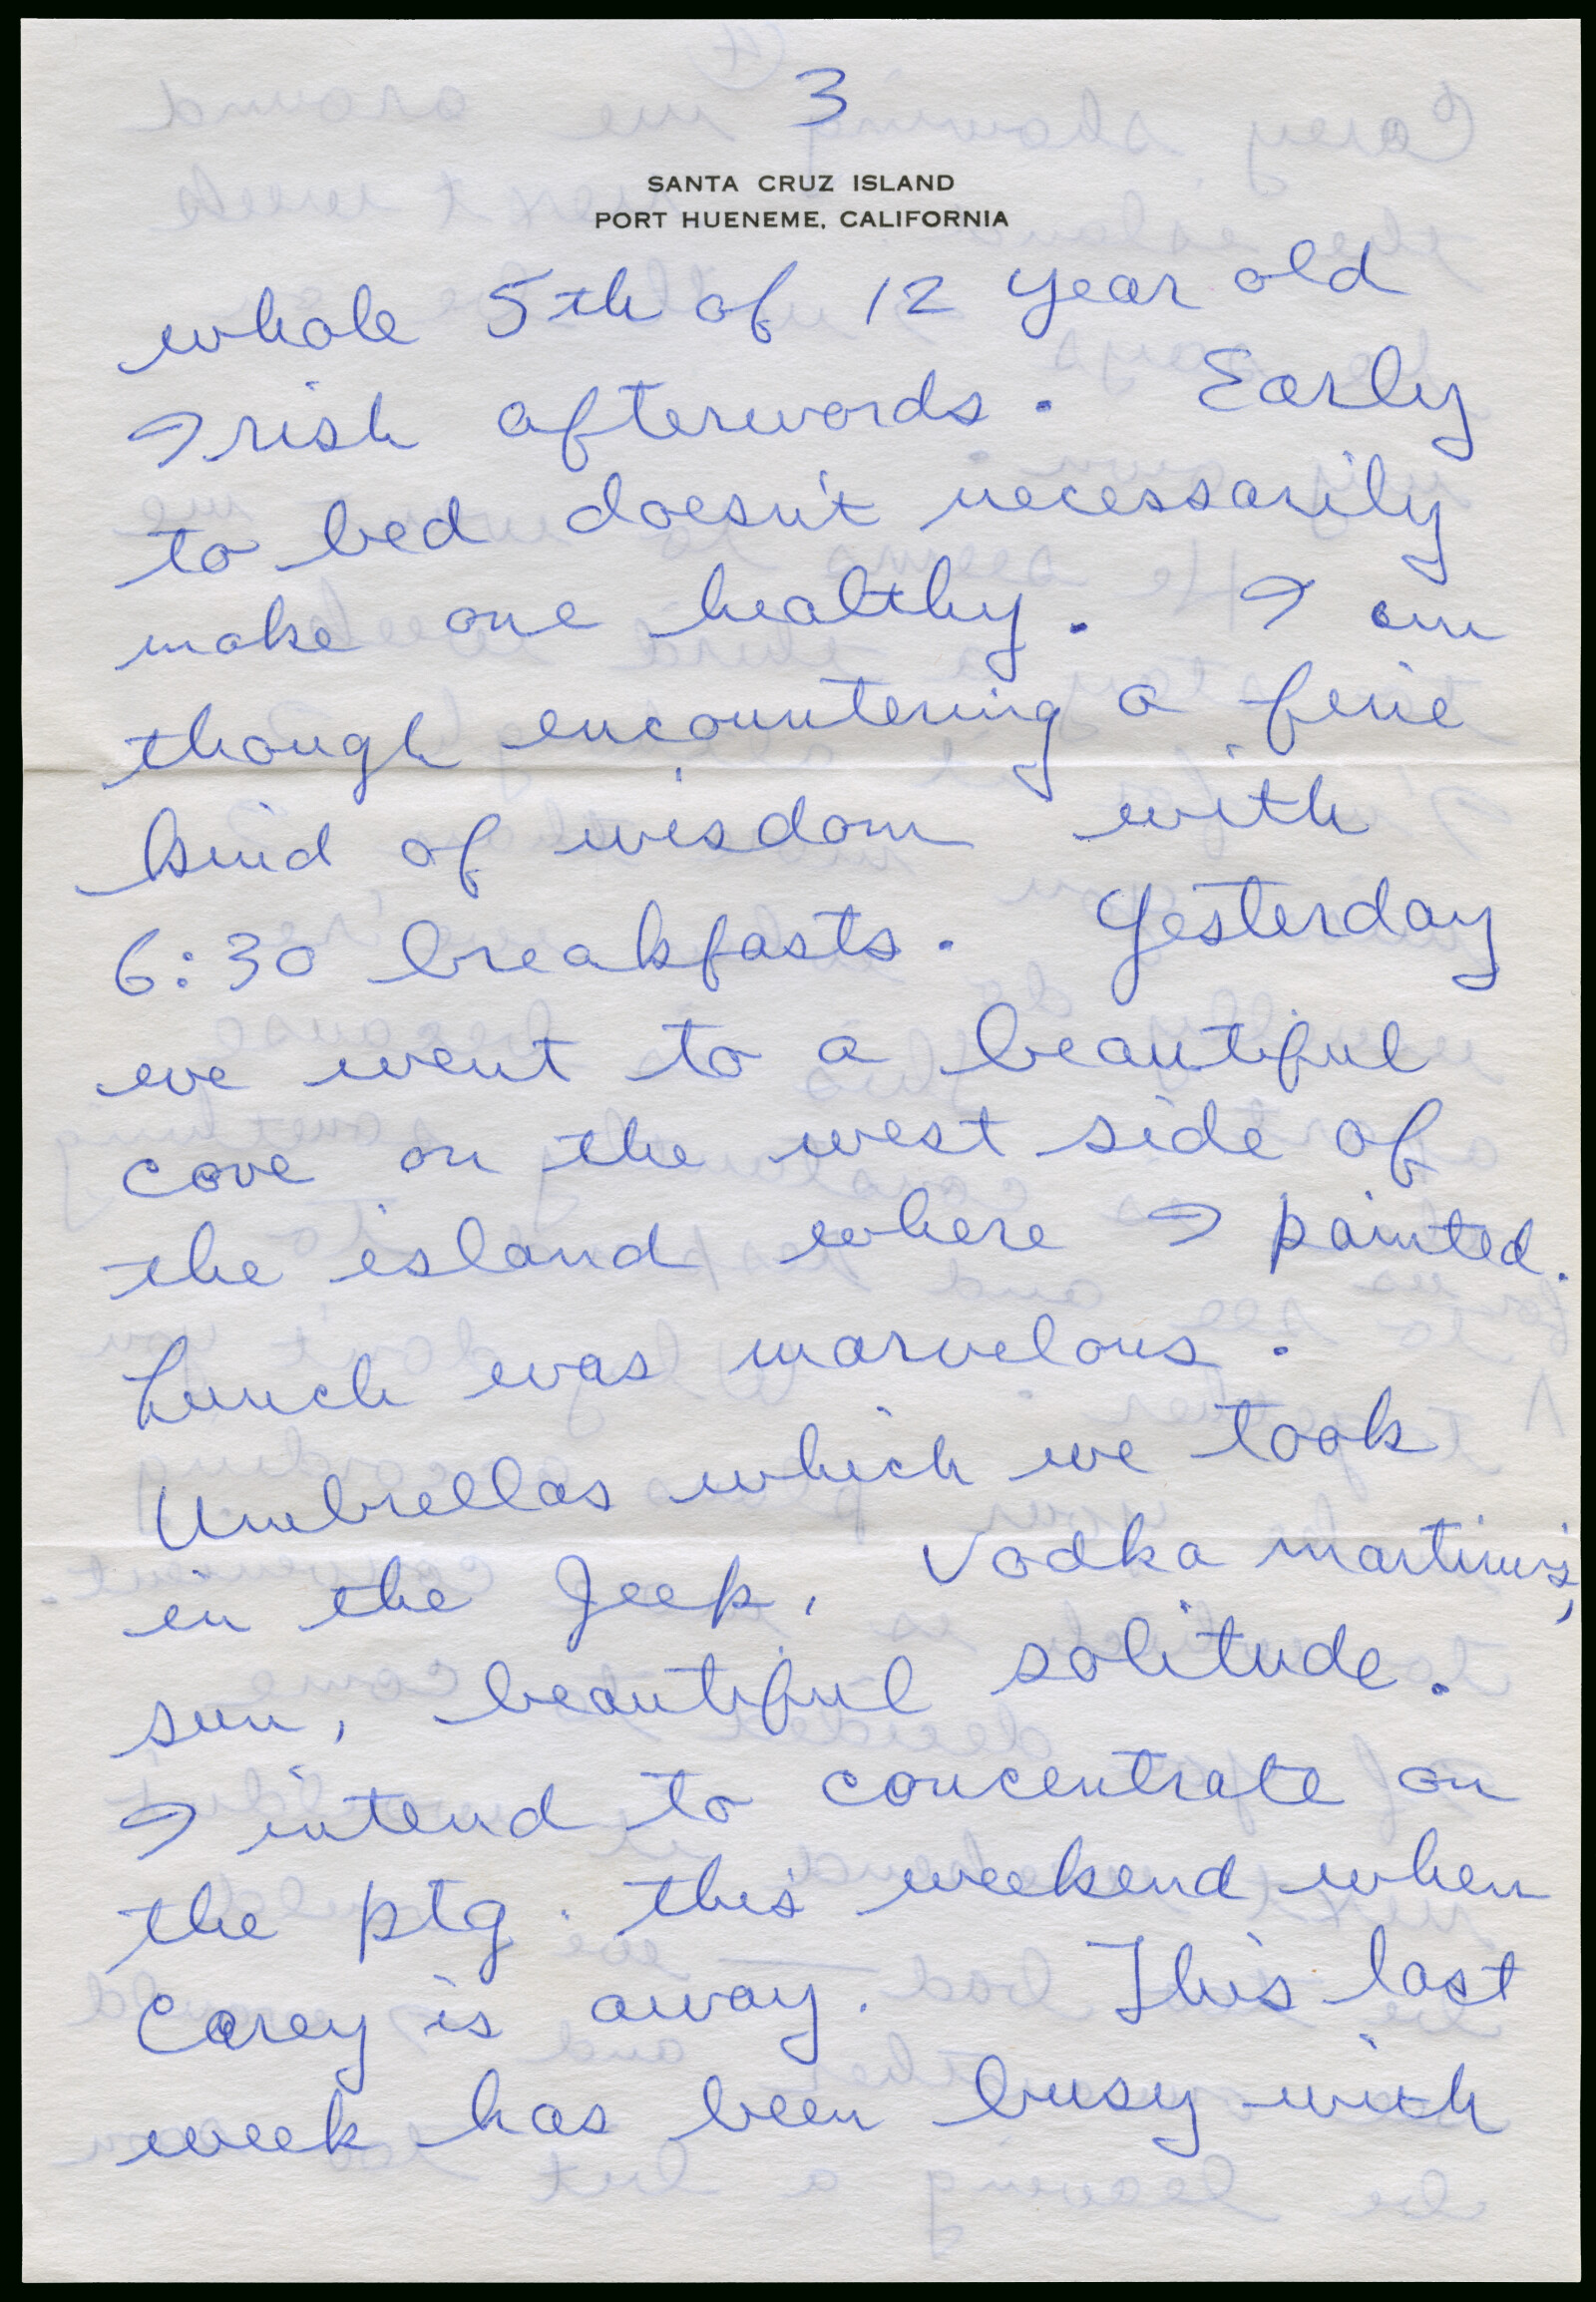 3
SANTA CRUZ ISLAND
PORT HUENEME, CALIFORNIA
whole 5th of 12 year old
Irish afterwords. Early
to bed doesn't necessarily
make one healthy. I am
though encountering a fine
kind of wisdom with
6:30 breakfasts. Yesterday
we went to a beautiful
cove on the west side of
the island where I painted.
Lunch was marvelous.
Umbrellas which we took
in the Jeep, Vodka martini's,
sun, beautiful solitude.
I intend to concentrate on
the ptg. this weekend when
Carey is away. This last
week has been busy with